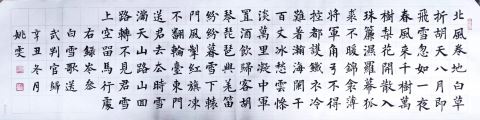 北風卷地白草
折胡天八月即
飛雪忽如一夜
春風來千樹萬
樹梨花開散入
珠簾濕羅幕狐
裘不暖錦衾薄
將軍角弓不得
控都護鐵衣冷
難著瀚海闌干
百丈冰愁雲慘
淡萬里凝中軍
置酒飲歸客胡
琴琵琶與羌笛
紛紛暮雪下轅
門風掣紅旗凍
不翻輪臺東門
送君去去時雪
滿天山路山回
路轉不見君雪
上空留馬行處
右錄岑參
白雪歌送
武判官歸
辛丑冬月
姚雯